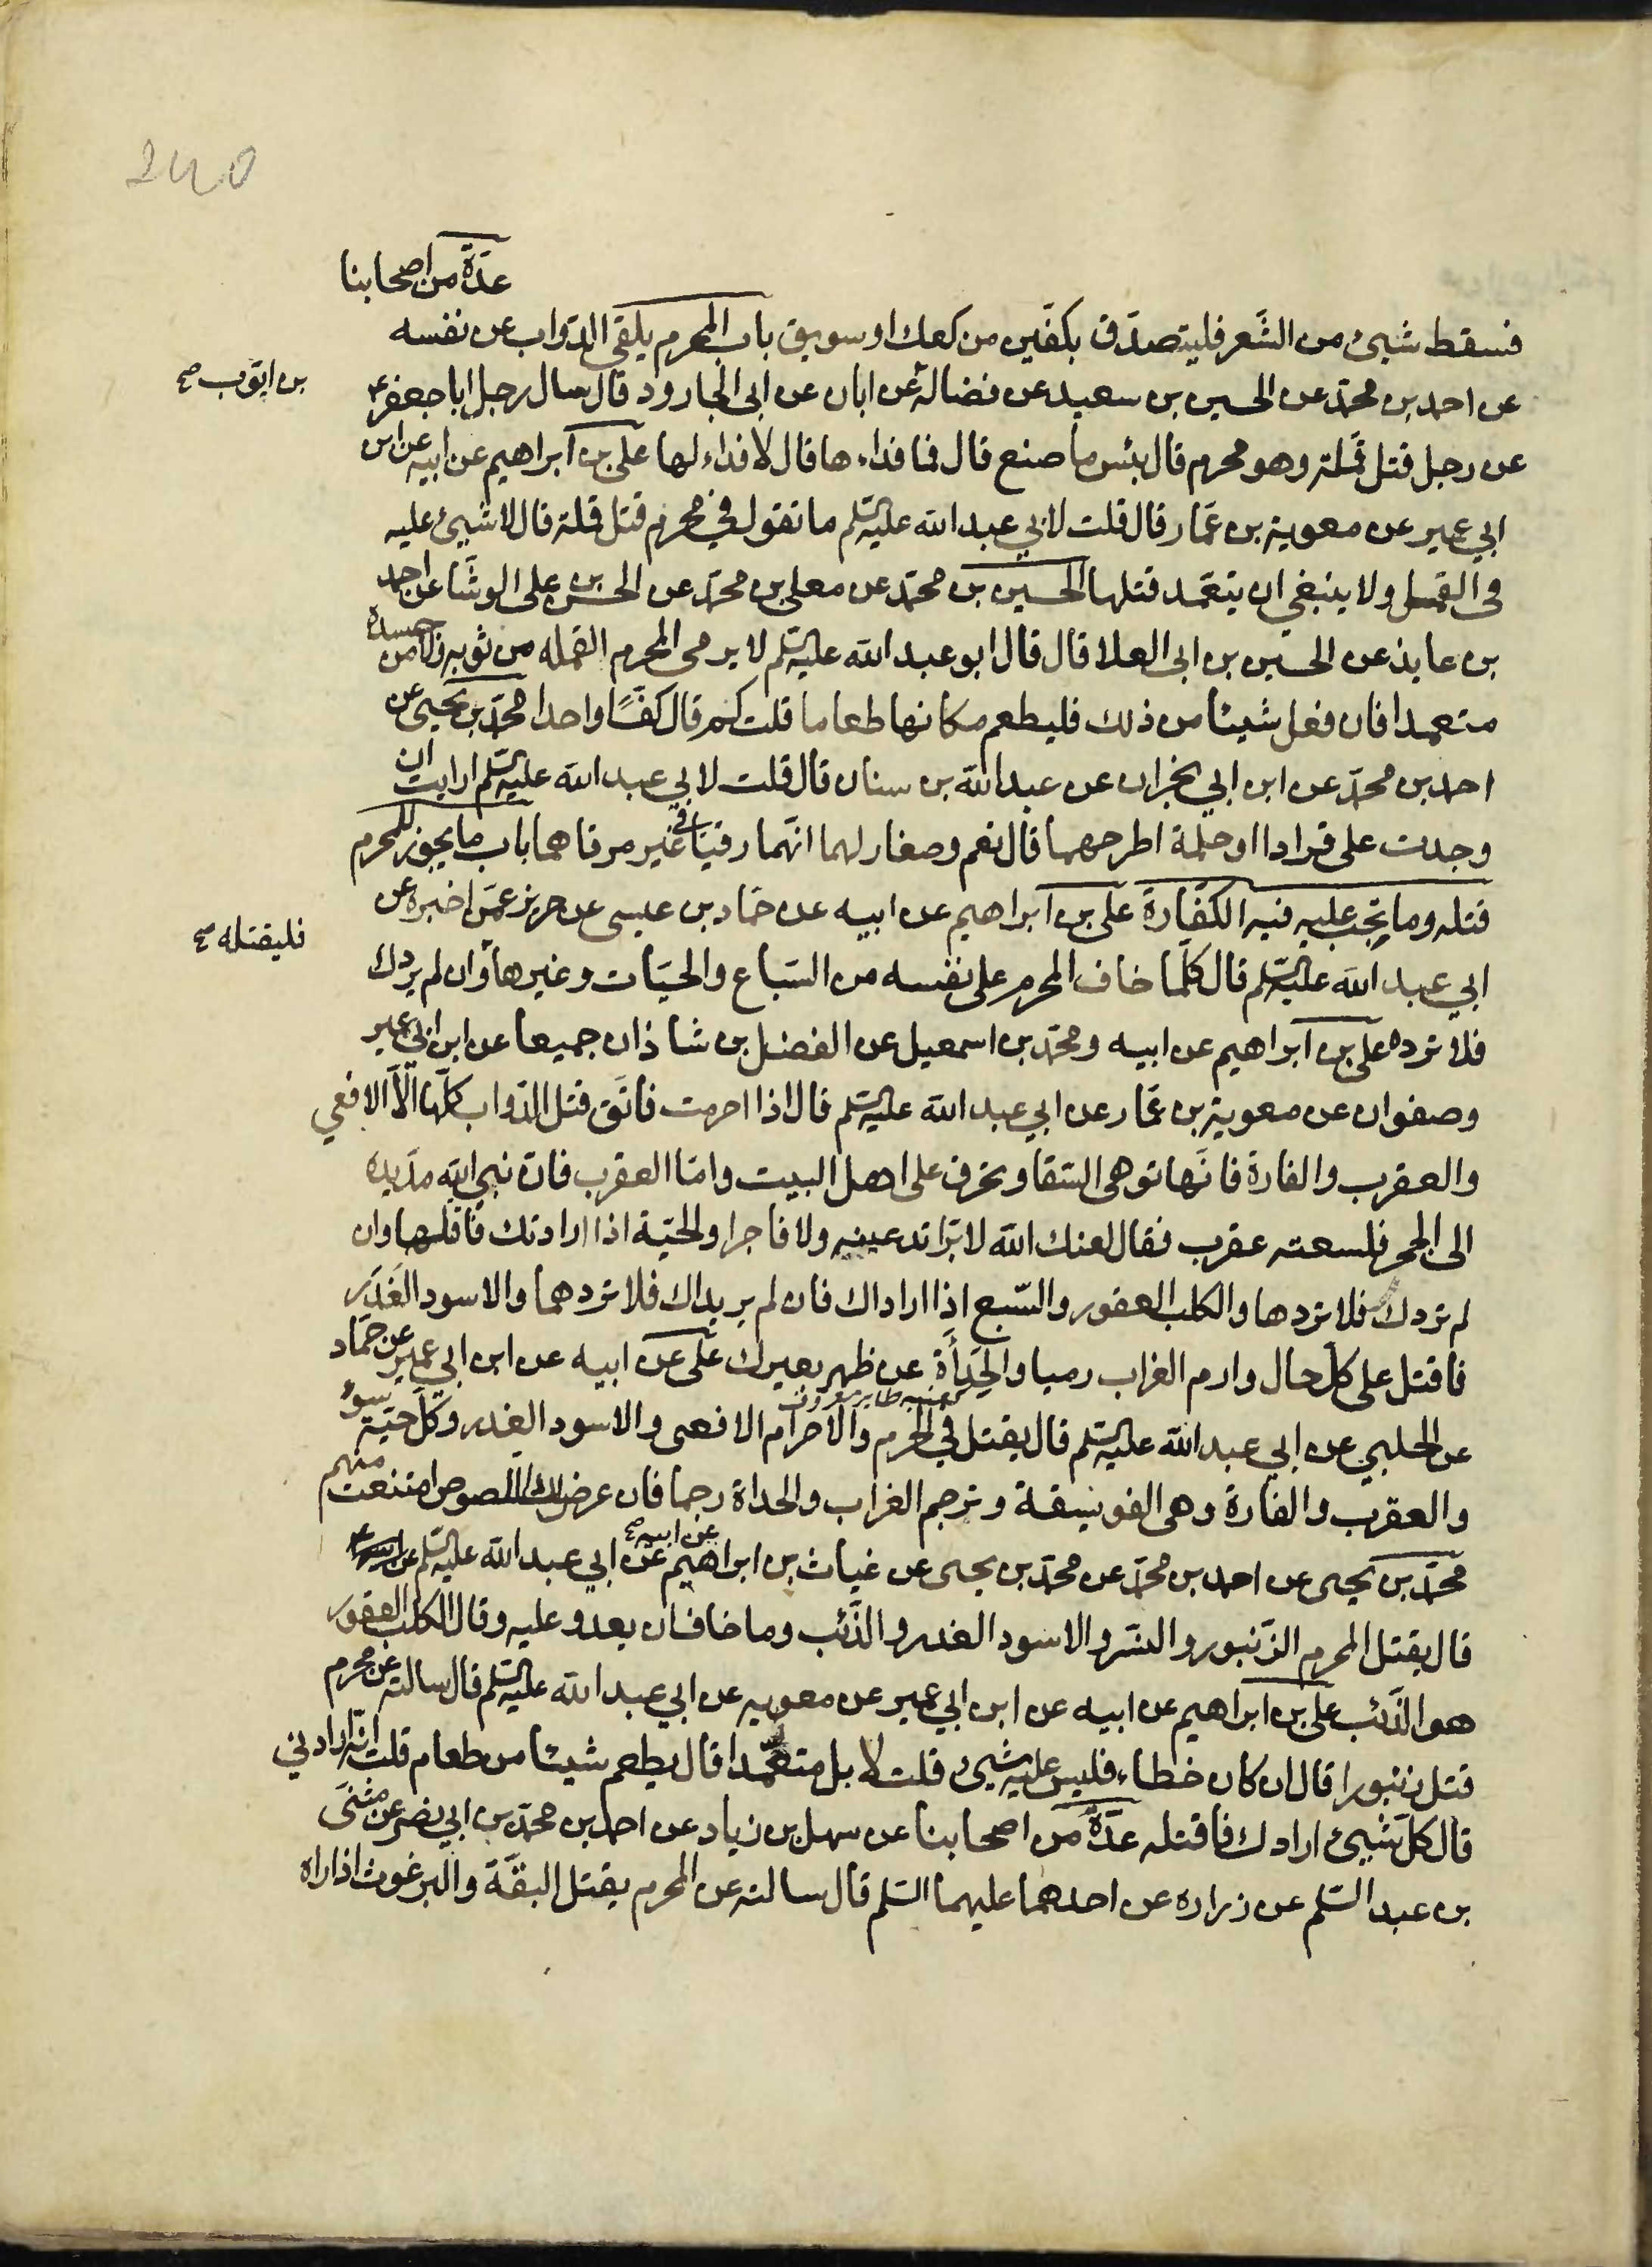 240
عدّة من اصحابنا
فسقط شيئ من الشَّعر فليتصدّق بكفّين من كعك او سويق باب المحرم يلقى الدّواب عن نفسه
عن احمد بن محمّد عن الحسين بن سعيد عن فضالة عن ابان عن ابى الجارود قال سال رجل ابا جعفر ع
بن ايّوب صح
عن رجل قتل قملة وهو محرم قال بئس ما صنع قال فما فداءها قال لا فداء لها على بن ابراهيم عن ابيه عن ابن
ابي عمير عن معوية بن عمّار قال قلت لابي عبد الله عليه السّلم ما تقول في محرم قتل قملة قال لا شيئ عليه
فى القمل ولا ينبغي ان يتعمّد قتلها الحسين بن محمّد عن معلى بن محمّد عن الحسن بن على الوشّا عن احمد
بن عايذ عن الحسين بن ابى العلا قال قال ابو عبد الله عليه السّلم لا يرمى المحرم القمله من ثوبه ولا من جسده
متعمدا فان فعل شيئا من ذلك فليطعم مكانها طعاما قلت كم قال كفًّا واحدا محمّد بن يحيى عن
احمد بن محمّد عن ابن ابي نجران عن عبد الله بن سنان قال قلت لابي عبد الله عليه السّلم ارايت ان
وجدت على قرادا او حلمة اطرحهما قال نعم وصغار لهما انّهما رقيا فى غير مرقاهما باب ما يجوز للمحرم
قتله وما يجب عليه فيه الكفّارة على بن ابراهيم عن ابيه عن حمّاد بن عيسى عن حريز عمّن اخبره عن
ابي عبد الله عليه السّلم قال كلّما خاف المحرم على نفسه من السّباع والحيّات وغيرها وان لم يردك
فليقتله صح
فلا ترده على بن ابراهيم عن ابيه ومحمّد بن اسمعيل عن الفضل بن شاذان جميعا عن ابن ابي عمير
وصفوان عن معوية بن عمّار عن ابي عبد الله عليه السّلم قال اذا احرمت فاتّق قتل الدّواب كلّها الّا الافعي
والعقرب والفارة فانّها توهى السّقا وتحرق على اهل البيت وامّا العقرب فان نبي الله مدّ يده
الى الحجر فلسعته عقرب فقال لعنك الله لا برّا تدعينه ولا فاجرا والحيّة اذا ارادتك فاقتلها وان
لم تردك فلا تردها والكلب العقور والسّبع اذا اراداك فان لم يريداك فلا تردهما والاسود الغَدَر
فاقتل على كلّ حال وارم الغراب رميا والحِدَأَة عن ظهر بعيرك على عن ابيه عن ابن ابي عمير عن حمّاد
كعنبه طاير معروف
عن الحلبي عن ابي عبد الله عليه السّلم قال يقتل في الحرم والاحرام الافعى والاسود الغدر وكلّ حيّة سوء
والعقرب والفارة وهى الفويسقة وترجم الغراب والحداة رجما فان عرض لك اللّصوص امتنعت منهم
محمّد بن يحيى عن احمد بن محمّد عن محمّد بن يحيى عن غياث بن ابراهيم عن ابيه صح عن ابي عبد الله عليه السّلم
قال يقتل المحرم الزّنبور والنسّر والاسود الغدر والذّئب وما خاف ان يعدو عليه وقال الكلب العقور
هو الذّئب على بن ابراهيم عن ابيه عن ابن ابي عمير عن معويه عن ابي عبد الله عليه السّلم قال سالته عن محرم
قتل زنبورا قال ان كان خطاء فليس عليه شيئ قلت لا بل متعمّدا قال يطعم شيئا من طعام قلت انّه ارادني
قال كلّ شيئ ارادك فاقتله عدّة من اصحابنا عن سهل بن زياد عن احمد بن محمّد بن ابي نصر عن مثنّى
بن عبد السّلم عن زراره عن احدهما عليهما السّلم قال سالته عن المحرم يقتل البقّة والبرغوث اذا راه